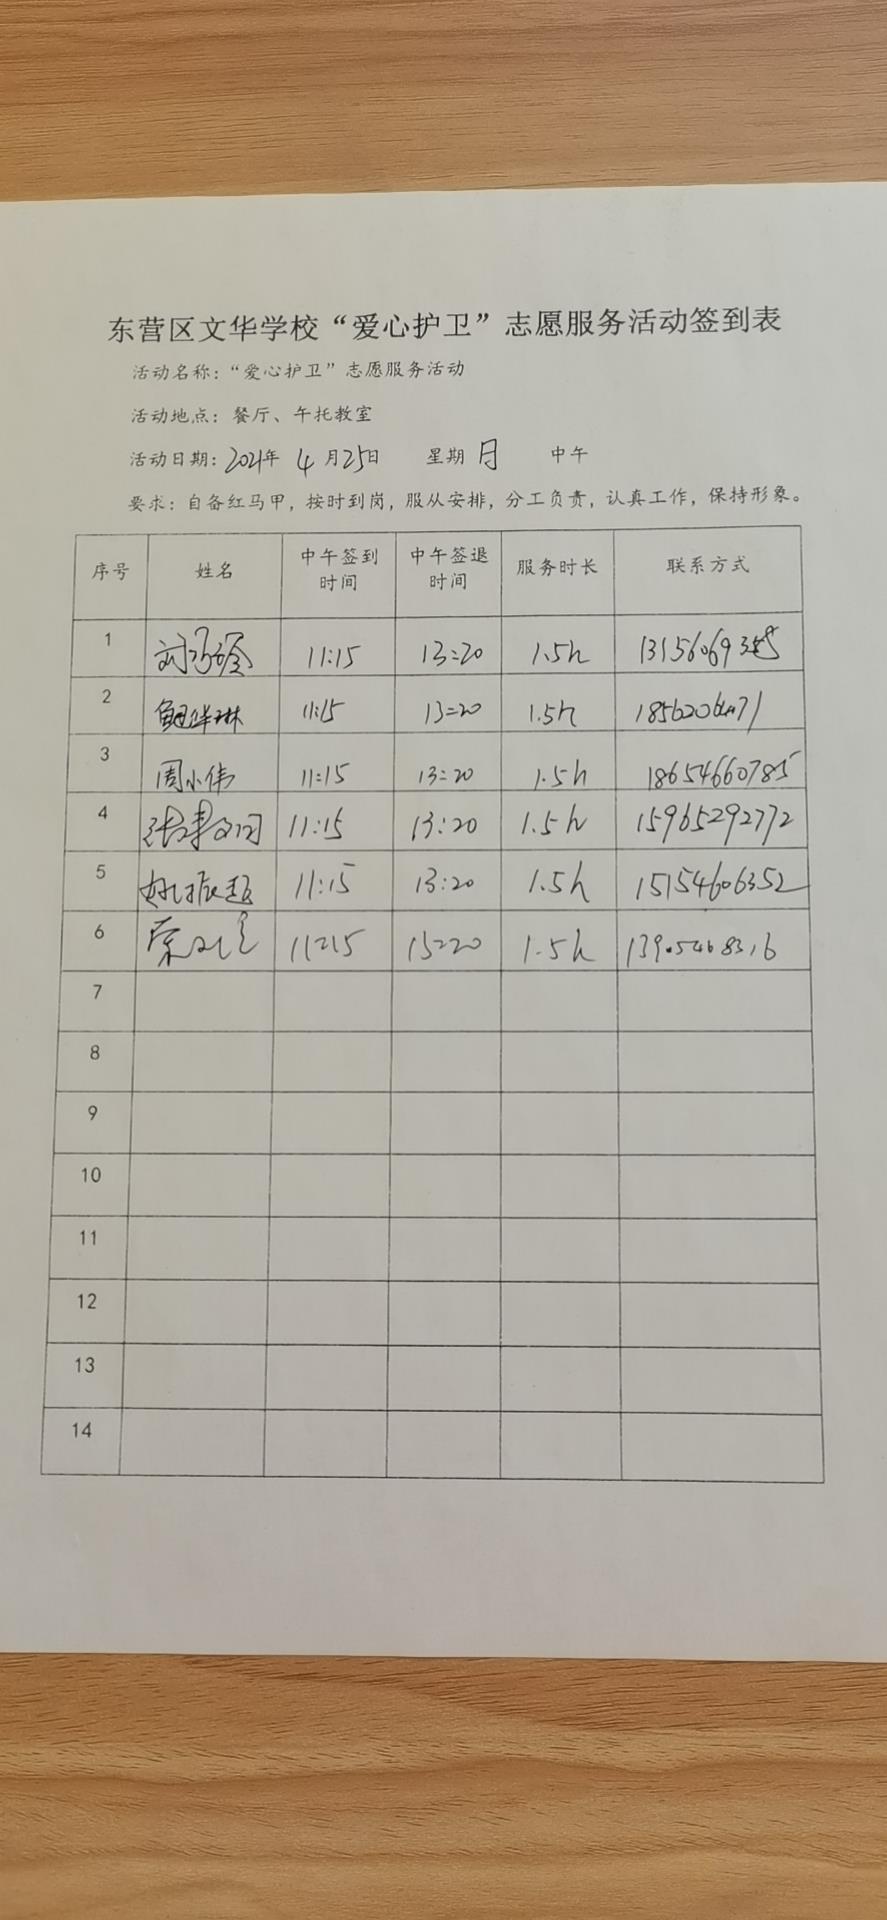 东营区文华学校“爱心护卫”志愿服务活动签到表
活动名称：“爱心护卫”志愿服务活动
活动地点：餐厅、午托教室
活动日期：2021年 4月25日 星期日 中午
要求：自备红马甲，按时到岗，服从安排，分工负责，认真工作，保持形象。
序号 姓名 中午签到时间 中午签退时间 服务时长 联系方式
1 11:15 13:20 1.5h
2 11:15 13:20 1.5h
3 周小伟 11:15 13:20 1.5h 18654660785
4 11:15 13:20 1.5h 15965292772
5 11:15 13:20 1.5h 15154606352
6 11:15 13:20 1.5h 13905468316
7
8
9
10
11
12
13
14